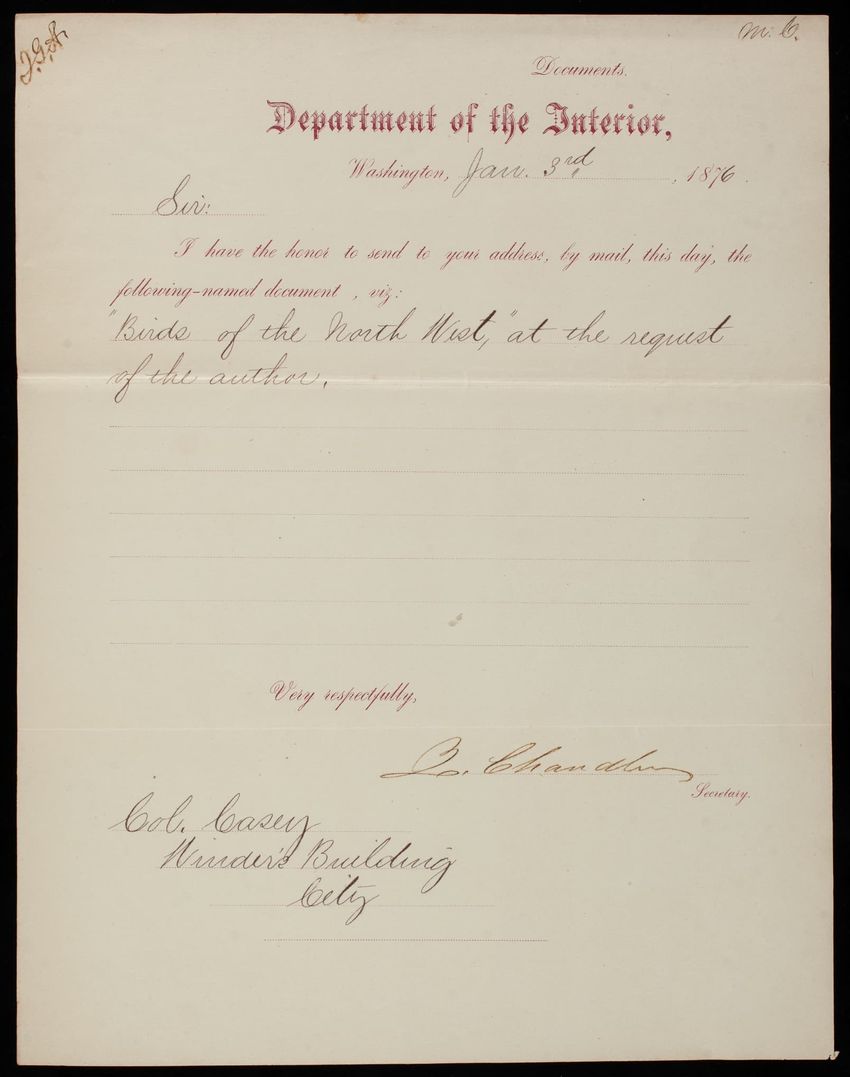 J.G.A.
M. C.
Documents.
Department of the Interior,
Washington, Jan. 3rd, 1876.
Sir:
I have the honor to send to your address, by mail, this day, the
following-named document , viz:
"Birds of the North West," at the request
of the author.
Very respectfully,
Z. Chandler
Secretary.
Col. Casey
Winder's Building
City